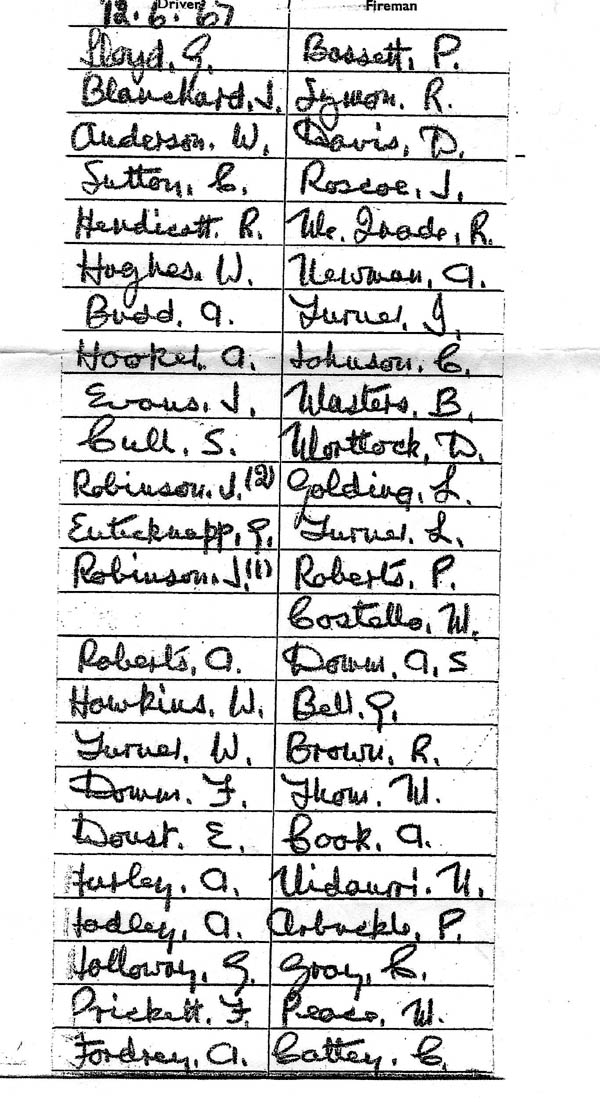 Driver Fireman
12. 6. 67
Lloyd, G. Bassett, P.
Blanchard, J. Symon. R.
Anderson. W. Davis, D.
Sutton, C. Roscoe, J.
Hendicott. R. Mc. Quade, R.
Hughes. W. Newman, A.
Budd. A. Turner, J.
Hooker. A. Johnson. C.
Evans. J. Masters, B.
Cull. S. Worttock, D.
Robinson. J. (2) Golding, L.
Enticknapp, G. Turner. L.
Robinson. J. (1) Roberts, P.
Costello, M.
Roberts, A. Dowm, A, S
Hawkins, W. Bell. G.
Turner, W. Brown, R.
Domm. F. Thom. M.
Doust. E. Cook. A.
Furley. A. Vidaurri. N.
Hadley, A. Arbuckle, P.
Holloway, G. Gray, C.
Prickett. F. Peace, W.
Fordrey, A. Cattey. C.